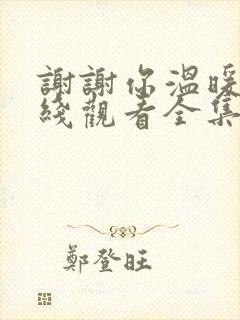 謝謝你溫暖
綫觀看全集
鄭登旺